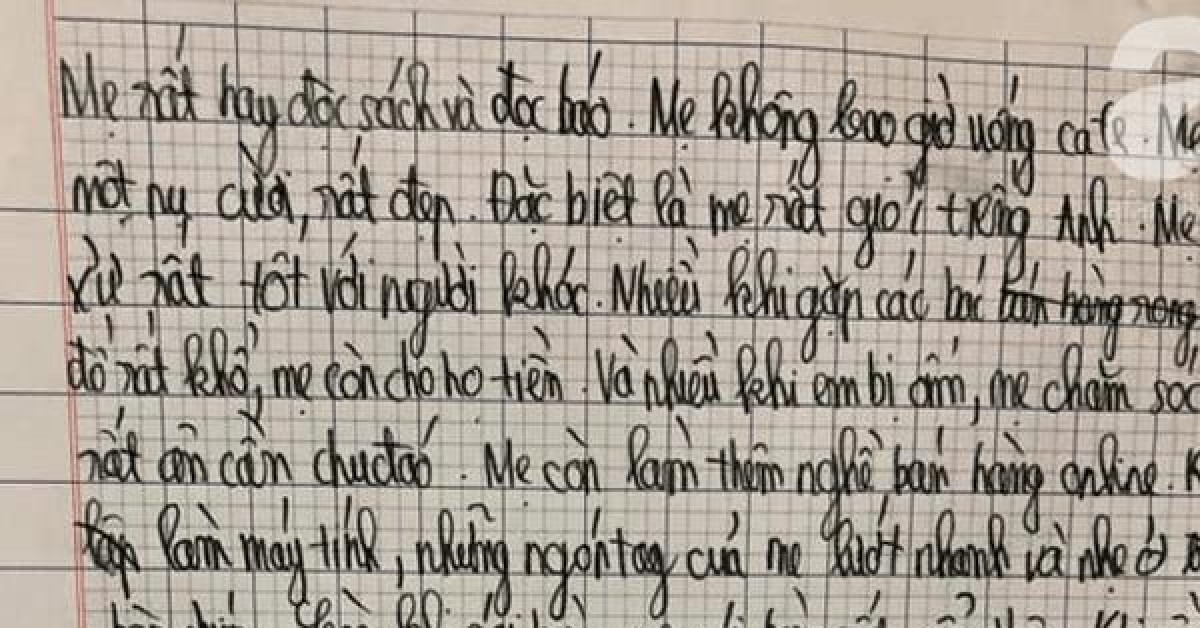 Mẹ rất hay đọc sách và đọc báo. Mẹ không bao giờ uống cafe. Mẹ
một nụ cười, rất đẹp. Đặc biệt là mẹ rất giỏi tiếng Anh. Mẹ
xử rất tốt với người khác. Nhiều khi gặp các bác bán hàng rong,
đó rất khổ, mẹ còn cho họ tiền. Và nhiều khi em bị ốm, mẹ chăm sóc
rất ân cần chu đáo. Mẹ còn làm thêm nghề bán hàng online.
làm máy tính, những ngón tay của mẹ lướt nhanh và nhẹ ở